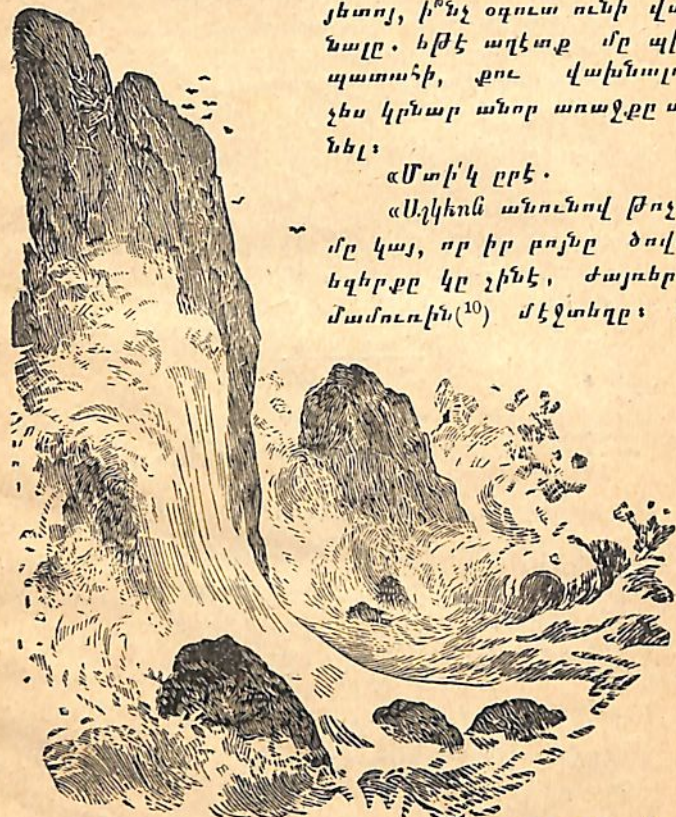 յետոյ, ի՞նչ օգուտ ունի վա
նալը. եթէ աղէտք մը պլ
պատահի, քու վախնալո
չես կրնար անոր առաջքը ա
նել։
«Մտի՛կ ըրէ.
«Ալկիոն անունով թռչ
մը կայ, որ իր բոյնը ծով
եզերքը կը շինէ, ժայռեր
մամուռին(10) մէջտեղը։